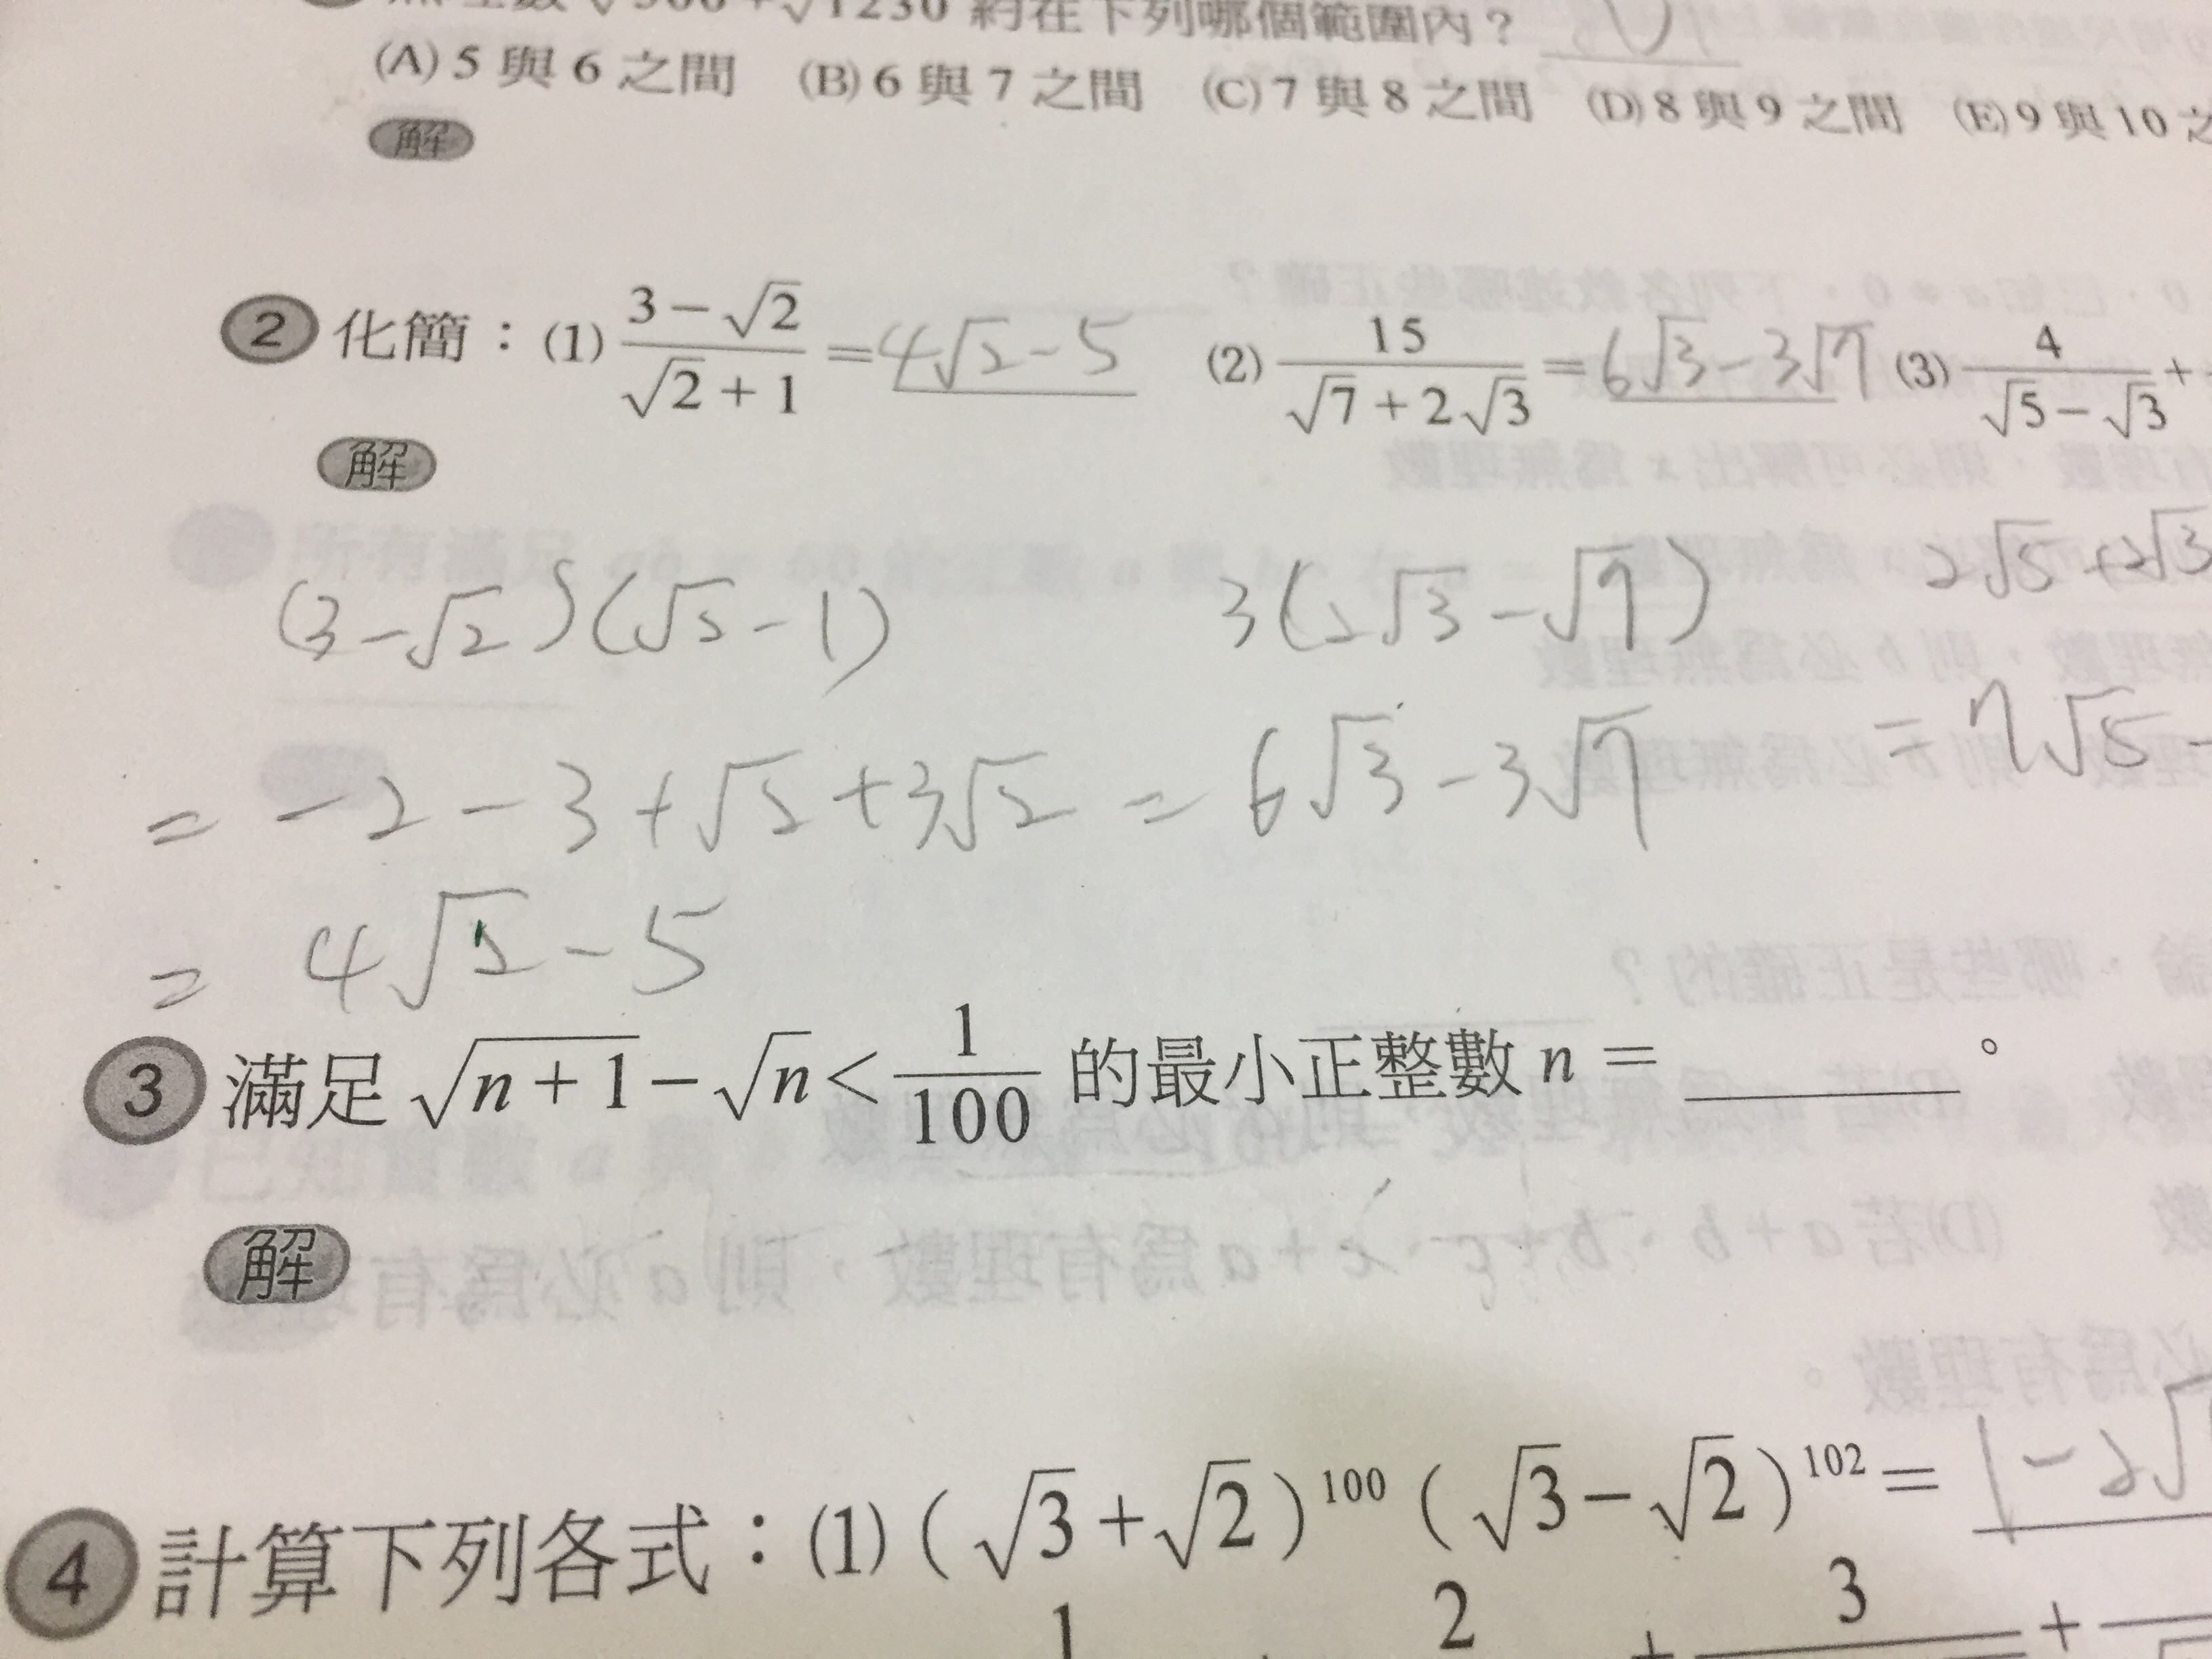 約在下列哪個範圍內？
(A) 5 與 6 之間 (B) 6 與 7 之間 (C) 7 與 8 之間 (D) 8 與 9 之間 (E) 9 與 10 之
解
2 化簡：(1) (3−√2)/(√2+1) = 4√2−5 (2) 15/(√7+2√3) = 6√3−3√7 (3) 4/(√5−√3) +
解
(3−√2)(√2−1) 3(2√3−√7) 2√5+2√3
= −2−3+√2+3√2 = 6√3−3√7 = 7√5−
= 4√2−5
3 滿足 √(n+1) − √n < 1/100 的最小正整數 n = ______。
解
4 計算下列各式：(1) (√3+√2)^100 (√3−√2)^102 =
1 2 + 3 +